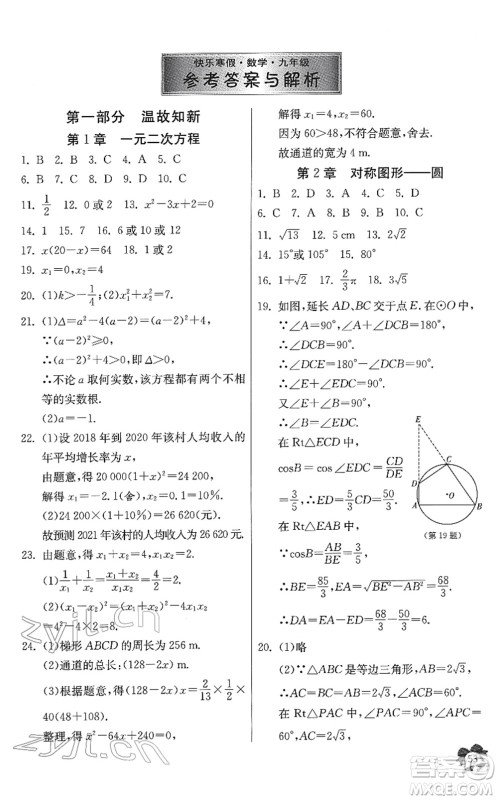 快乐寒假·数学·九年级
参考答案与解析
第一部分 温故知新
第 1 章 一元二次方程
1. B 2. B 3. C 4. A 5. C
6. B 7. D 8. D 9. A 10. B
11. 1/2 12. 0 或 2 13. x²-3x+2=0
14. 1 15. 7 16. 6 或 10 或 12
17. x(20-x)=64 18. 1 或 2
19. x₁=0,x₂=4
20. (1)k>-1/4;(2)x₁²+x₂²=7.
21. (1)Δ=a²-4(a-2)=(a-2)²+4.
∵(a-2)²⩾0,
∴(a-2)²+4>0,
∴不论 a 取何实数,该方程都有两个不相
等的实数根.
(2)a=-1.
22. (1)设 2018 年到 2020 年该村人均收入的
年平均增长率为 x.
由题意,得 20 000(1+x)²=24 200,
解得 x₁=-2.1(舍),x₂=0.1=10%.
(2)24 200×(1+10%)=26 620(元).
故预测 2021 年该村的人均收入为 26 620 元.
23. 由题意,得 x₁+x₂=4,x₁x₂=2.
(1)1/x₁+1/x₂=(x₁+x₂)/(x₁x₂)=4/2=2.
(2)(x₁-x₂)²=(x₁+x₂)²-4x₁x₂
=4²-4×2=8.
24. (1)梯形 ABCD 的周长为 256 m.
(2)通道的总长:(128-2x) m.
(3)根据题意,得(128-2x)x=2/13×1/2×
40(48+108).
整理,得 x²-64x+240=0,
解得 x₁=4,x₂=60.
因为 60>48,不符合实际,
故通道的宽为 4 m.
第 2 章 对称图形——圆
1. B 2. A 3. C 4. C 5. D
6. C 7. A 8. B 9. D 10. C
11. √13 12. 5 cm 13. 2√2
14. 15°或 105° 15. 80°
16. 1+√2 17. 2/3π
19. 如图,延长 AD、BC 交于点 E. 在⊙O 中,
∵∠A=90°,∠A+∠DCB=180°,
∴∠DCB=90°.
∵∠EDC=180°-∠DCB=90°,
∴∠A+∠E=∠E+∠EDC=90°.
又∵∠A=90°,
∴∠B=∠EDC.
在 Rt△ECD 中,
cosB=cos∠EDC=CD/DE
=3/5,∴DE=50/3.
在 Rt△EAB 中,
∵cosB=AB/BE=3/5,
∴BE=85/3,EA=√(BE²-AB²)=68/3.
∴DA=EA-DE=68/3-50/3=6.
E
C
D
O
A
B
(第 19 题)
20. (1)略
(2)∵△ABC 是等边三角形,AC=2√3,
∴BC=AB=AC=2√3,∠ACB=∠ABC=
60°.
zyjl.cn